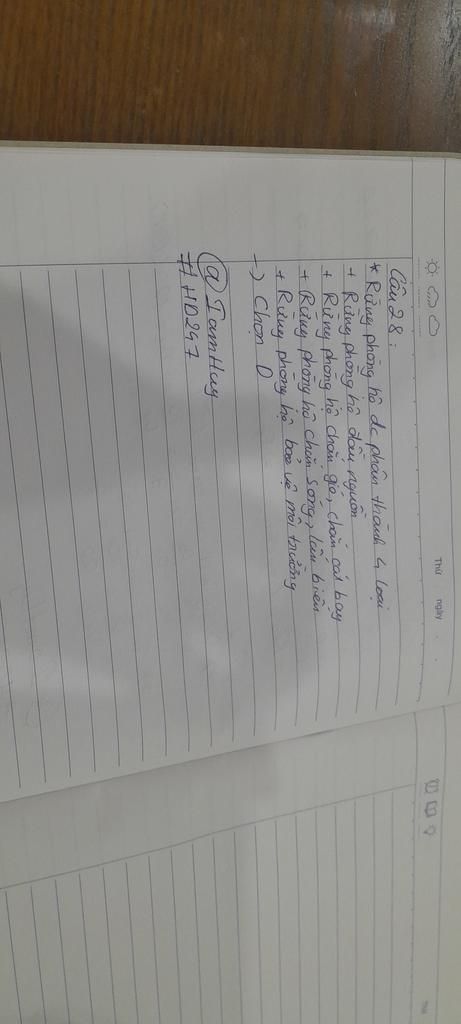 Thứ ngày
Câu 28:
* Rừng phòng hộ đc phân thành 4 loại
+ Rừng phòng hộ đầu nguồn
+ Rừng phòng hộ chắn gió, chắn cát bay
+ Rừng phòng hộ chắn sóng, lấn biển
+ Rừng phòng hộ bảo vệ môi trường
-> Chọn D
@ TamHuy
# HD247